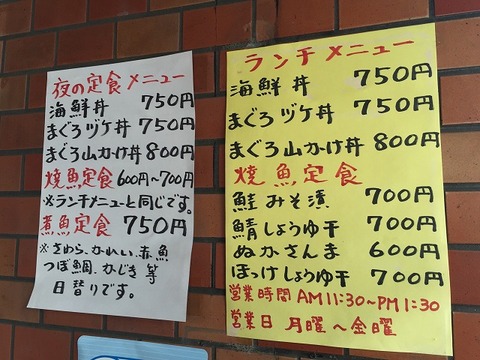 夜の定食メニュー
海鮮丼 750円
まぐろヅケ丼 750円
まぐろ山かけ丼 800円
焼魚定食 600円~700円
※ランチメニューと同じです。
煮魚定食 750円
※さわら、かれい、赤魚
つぼ鯛、かじき 等
日替りです。
ランチメニュー
海鮮丼 750円
まぐろヅケ丼 750円
まぐろ山かけ丼 800円
焼魚定食
鮭みそ漬 700円
鯖しょうゆ干 700円
ぬかさんま 600円
ほっけしょうゆ干 700円
営業時間 AM11:30~PM1:30
営業日 月曜~金曜